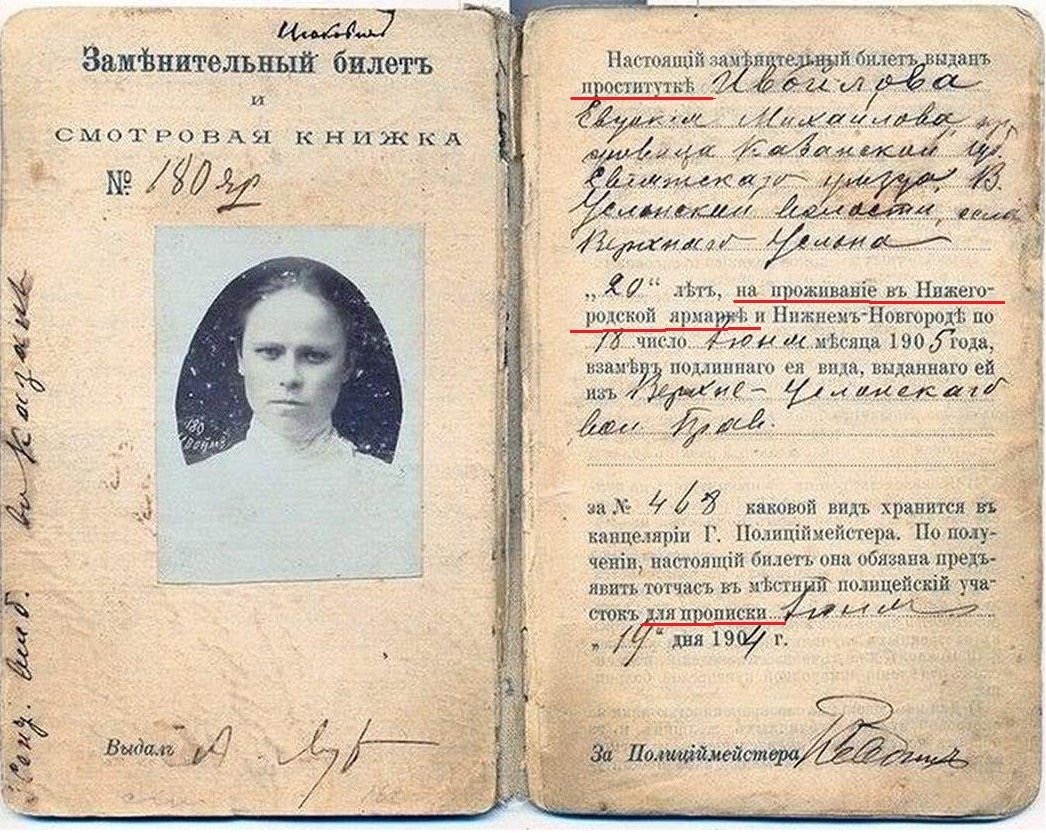 Замѣнительный билетъ
и
СМОТРОВАЯ КНИЖКА
№ 180 яр
180
Выдалъ А.
въ Казани
Настоящій замѣнительный билетъ выданъ
проституткѣ Ивойлова
Евдокія Михайлова,
Казанской губ.
Свіяжскаго уѣзда, В.
Услонской волости, села
Верхняго Услона
„20“ лѣтъ, на проживаніе въ Нижего-
родской ярмаркѣ и Нижнемъ-Новгородѣ по
18 число Іюня мѣсяца 1905 года,
взамѣнъ подлиннаго ея вида, выданнаго ей
изъ Верхне-Услонскаго
вол. Прав.
за № 468 каковой видъ хранится въ
канцеляріи Г. Полиціймейстера. По полу-
ченіи, настоящій билетъ она обязана предъ-
явить тотчасъ въ мѣстный полицейскій уча-
стокъ для прописки Іюня
„19“ дня 1904 г.
За Полиціймейстера